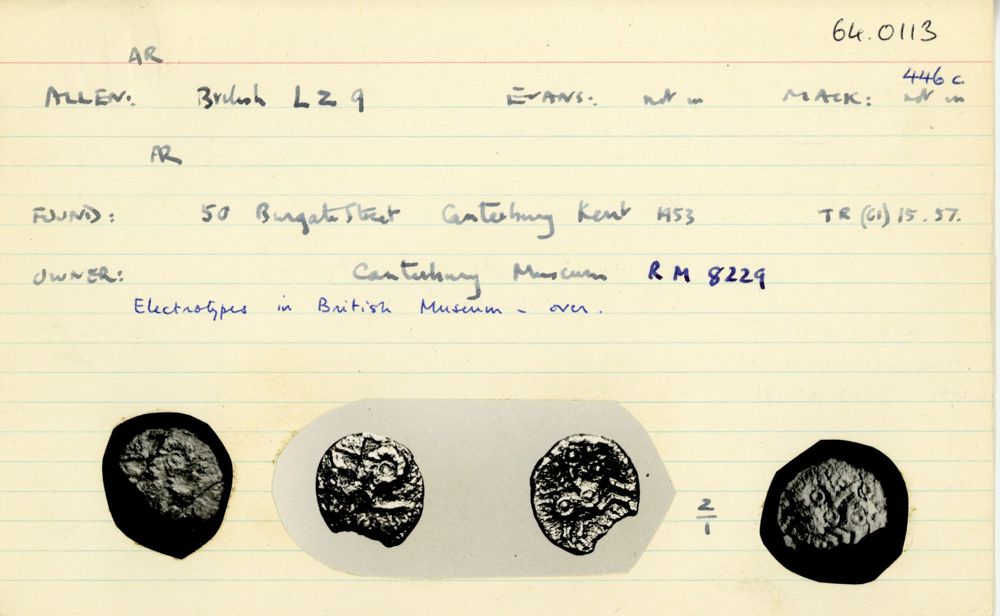 64.0113
AR
446 c
ALLEN: British LZ 9 EVANS: not in MACK: not in
AR
FOUND: 50 Burgate Street Canterbury Kent 1953 TR (61) 15.57.
OWNER: Canterbury Museum RM 8229
Electrotypes in British Museum - over.
2/1